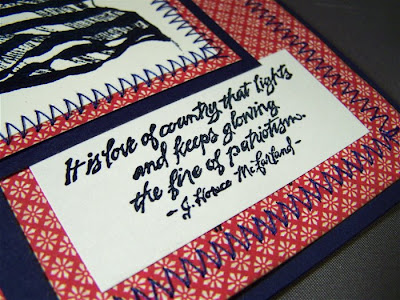 It is love of country that lights
and keeps glowing
the fire of patriotism.
- J. Horace McFarland -